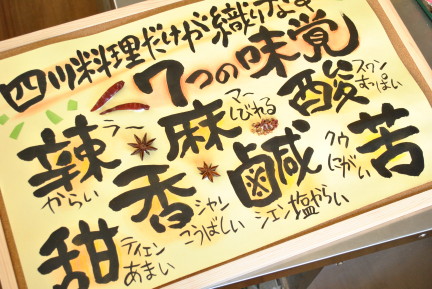 四川料理だけが織りなす
7つの味覚
辣 ラー からい
麻 マー しびれる
酸 スワン すっぱい
甜 ティエン あまい
香 シャン こうばしい
鹹 シエン 塩からい
苦 クウ にがい